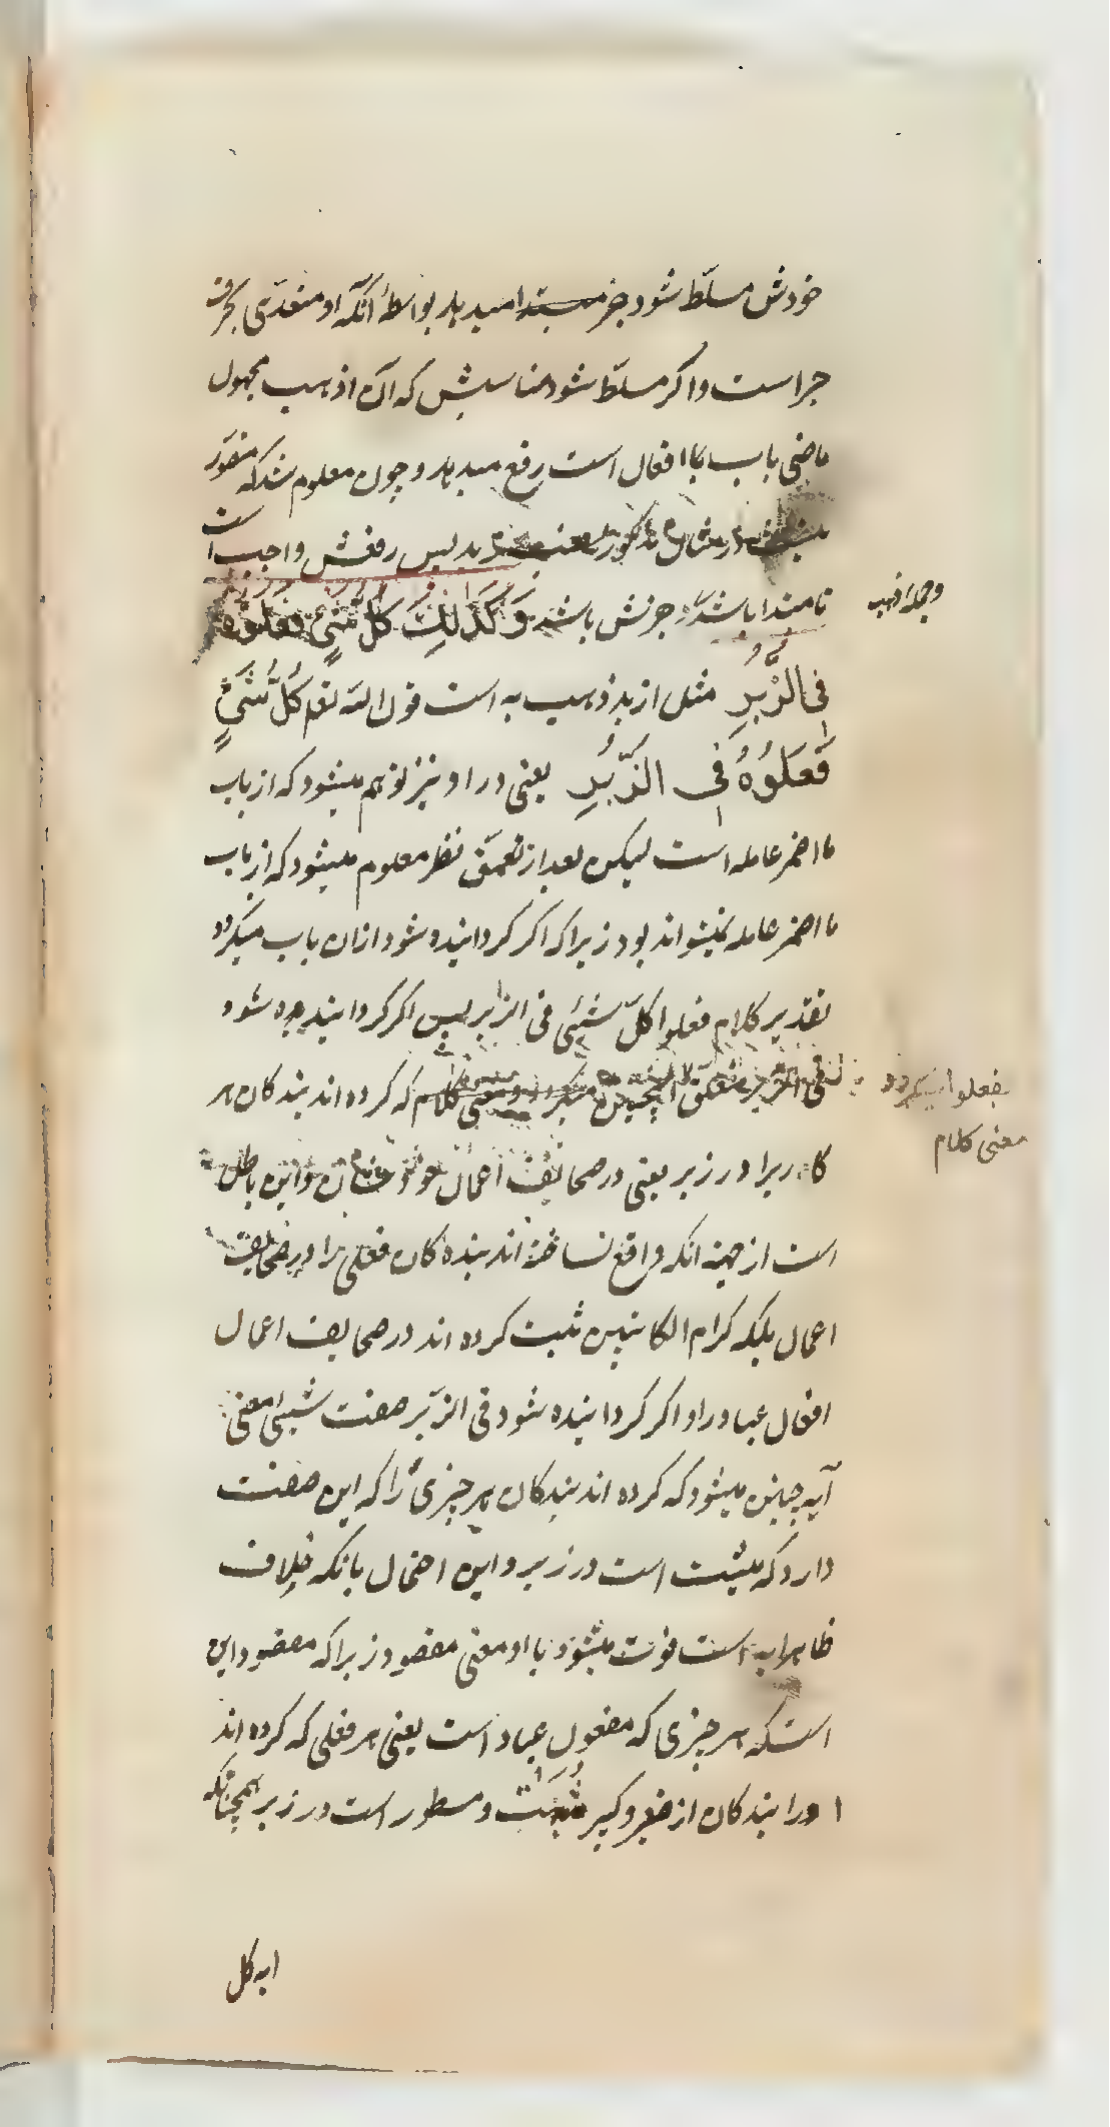 خودش مسلّط شود جر میدهد بواسطهٔ آنکه او متعدّی بحرف
جر است و اگر مسلّط شود مناسبش که آن اذهب مجهول
ماضی باب افعال است رفع میدهد و چون معلوم شد که
در مثال مذکور پس رفعش واجب است
تا مبتدا باشد جزش باشد وَكَذَالِكَ كُلُّ شَيْءٍ فَعَلُوهُ
فِي الزُّبُرِ مثل ازید ذهب به است قول الله تعم كُلُّ شَيْءٍ
فَعَلُوهُ فِي الزُّبُرِ یعنی در او نیز توهم میشود که از باب
ما اضمر عامله است لیکن بعد از تعمق نظر معلوم میشود که از باب
ما اضمر عامله نمیتواند بود زیرا که اگر گردانیده شود ازان باب میگردد
تقدیر کلام فعلوا کلّ شیئی فی الزبر پس اگر گردانیده شود
فی الزبر متعلق که کرده اند بندکان هر
کاریرا در زبر یعنی در صحایف اعمال خود و این باطل
است از جهة انکه واقع نساخته اند بنده کان فعلی را در صحایف
اعمال بلکه کرام الکاتبین ثبت کرده اند در صحایف اعمال
افعال عباد را و اگر گردانیده شود فی الزّبر صفت شیئی معنی
آیه چنین میشود که کرده اند بندکان هر چیزی را که این صفت
دارد که مثبت است در زبر و این احتمال بانکه خلاف
ظاهر ایه است فوت میشود با او معنی مقصود زیرا که مقصود این
است که هر چیزی که مفعول عباد است یعنی هر فعلی که کرده اند
اورا بندکان از صغیر و کبیر مُثبَت و مسطور است در زبر همچنانکه
ایه کل
وجمله اذهب
بفعلوا میگردد
معنی کلام